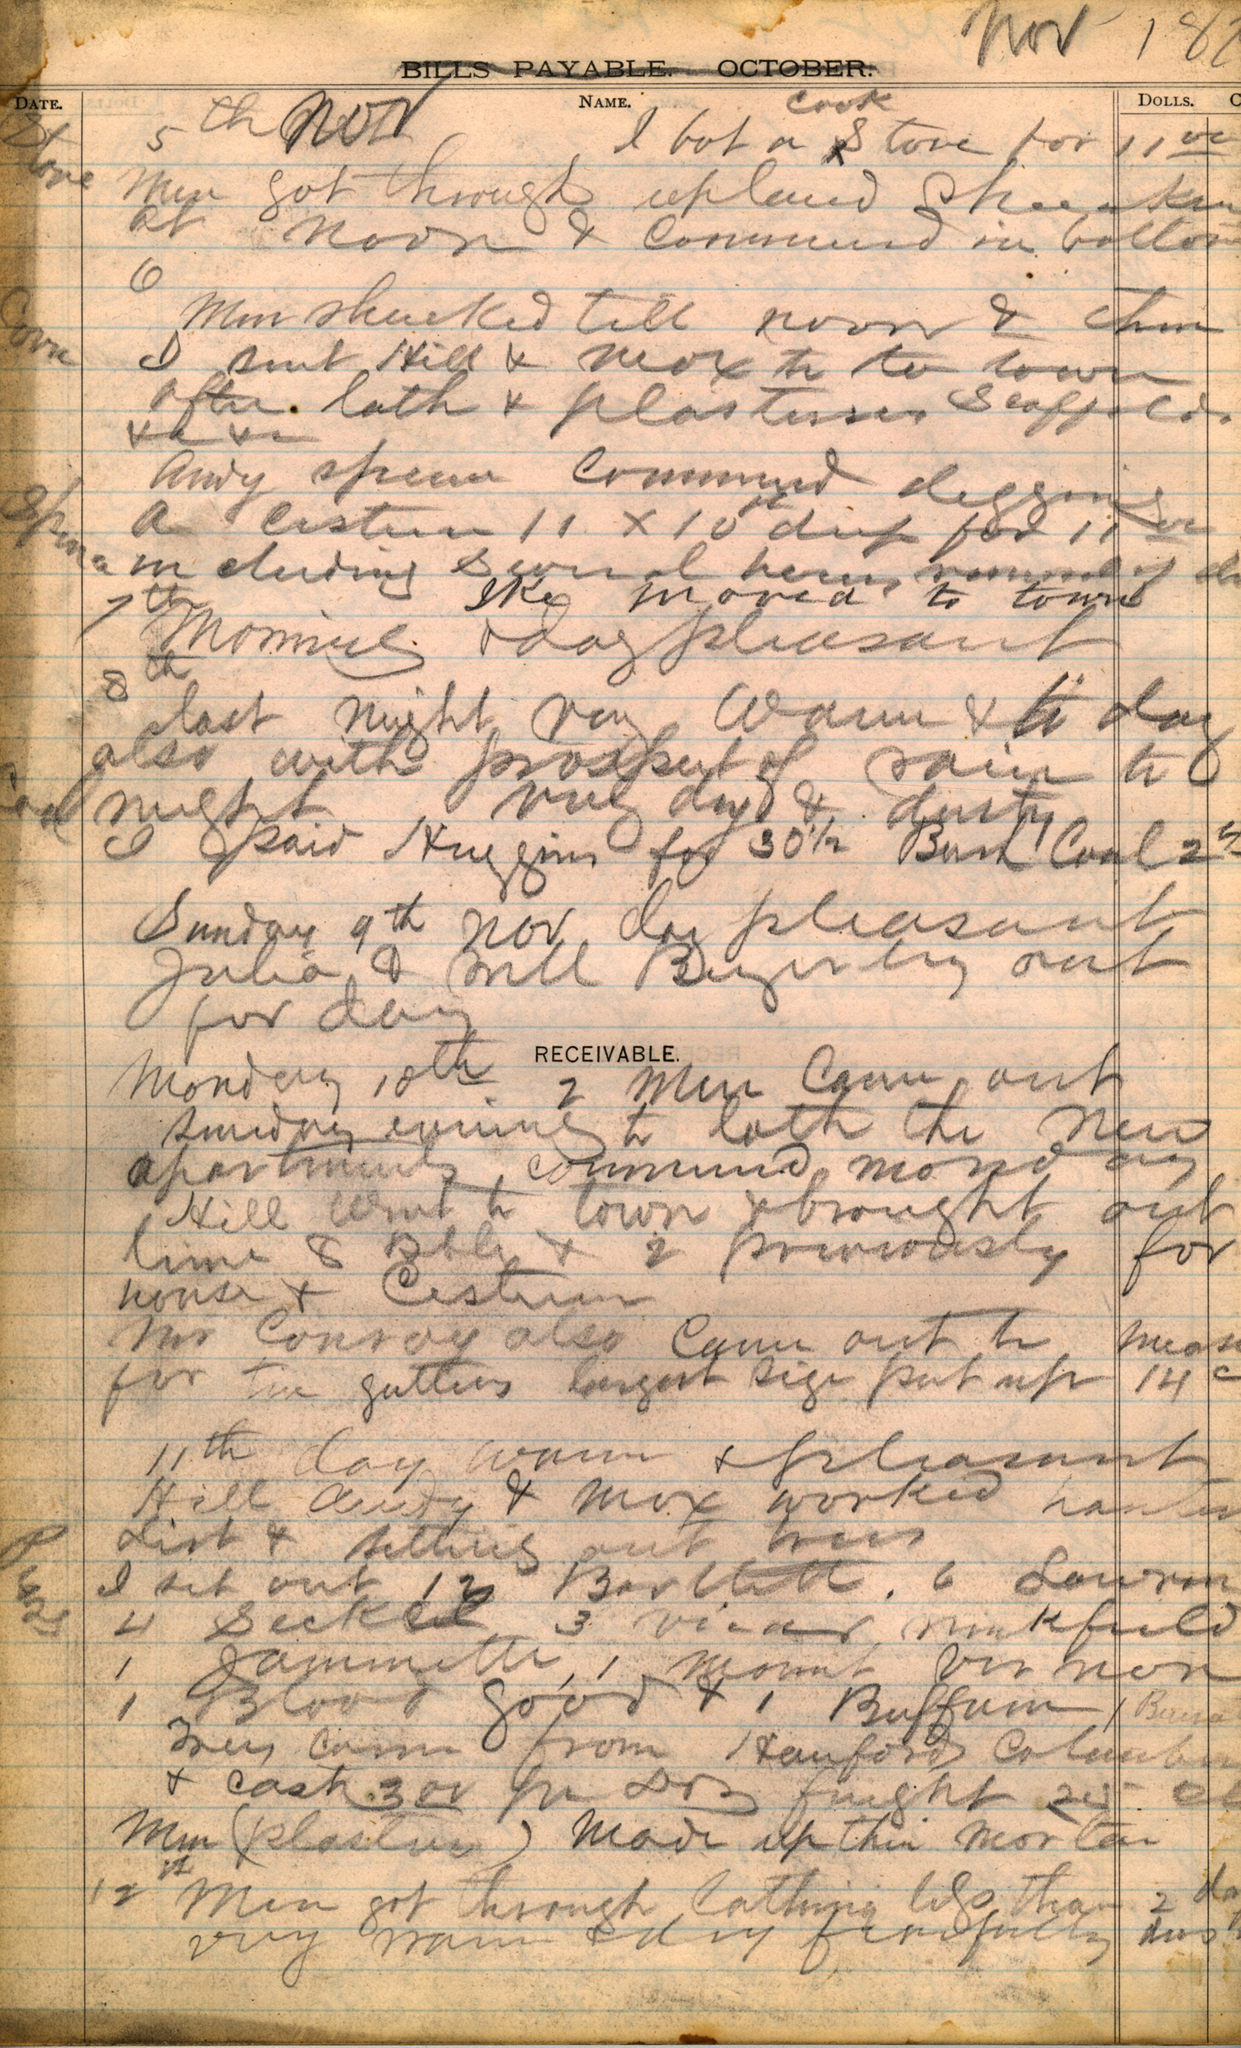 Nov 187
BILLS PAYABLE. OCTOBER.
DATE. NAME. DOLLS. C
Stove 5th Nov I bot a Cook Stove for 11 00
Men got through upland shucken
at Noon & Commencd in bottom
6
Corn Men shucked till noon & then
I sent Hill & Mox to to town
after lath & plasterers Scaffolds
Andy Commencd digging
a Cistern 11 x 10 ft deep for 11 00
including Several
7th Ike moved to town
Morning & day pleasant
8th
last night very Warm & to day
also with prospect of rain to
Coal night very dry & dusty
I paid Huggins for 30 1/2 Bush Coal 2
Sunday 9th Nov day pleasant
Julia & Will out
for day
RECEIVABLE.
Monday 10th 2 Men Came out
Sunday evening to lath the New
apartments commencd monday
Hill Went to town & brought out
lime 8 Bbls & 2 previously for
house & Cistern
Mr Conroy also Came out to Meas
for tin gutters largest size put up 14 c
11th day warm & pleasant
Hill Andy & Mox worked
dirt & setting out trees
I set out 12 Bartlett. 6 Lawren
4 Seckel 3 vicar winkfield
1 Jaminette, 1 Mount Vernon
1 Blood good & 1 Buffum 1
Trees came from Hanfords Columbus
& cash 3 00 pr Doz freight 25
Men (plasters) Made up thier Mortar
12th Men got through lathing less than 2 da
very warm & dry fearfully dus